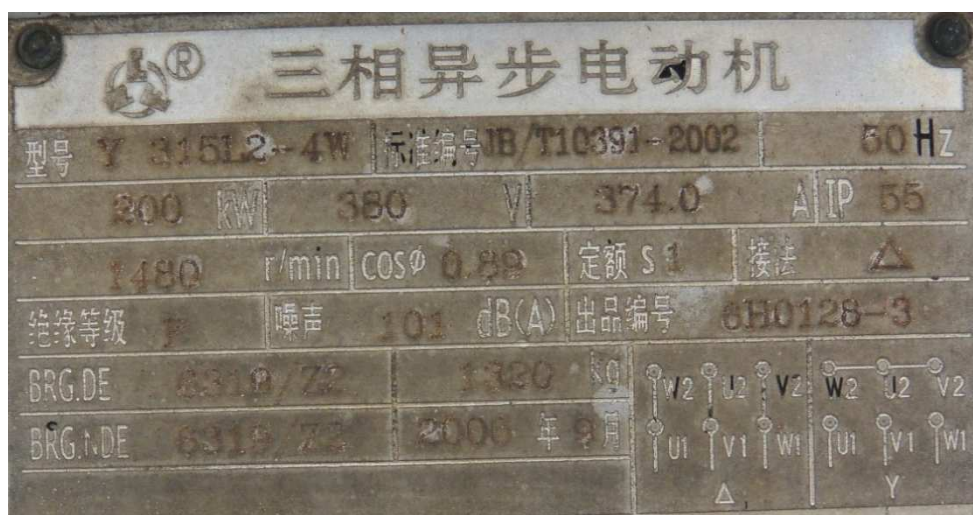 ® 三相异步电动机
型号 Y 315L2-4W 标准编号JB/T10391-2002 50 Hz
200 KW 380 V 374.0 A IP 55
1480 r/min COSΦ 0.89 定额 S 1 接法 △
绝缘等级 F 噪声 101 dB(A) 出品编号 6H0128-3
BRG.DE 6319/Z2 1320 kg
BRG.NDE 6319/Z2 2006 年 9月
W2 U2 V2 W2 U2 V2
U1 V1 W1 U1 V1 W1
△ Y